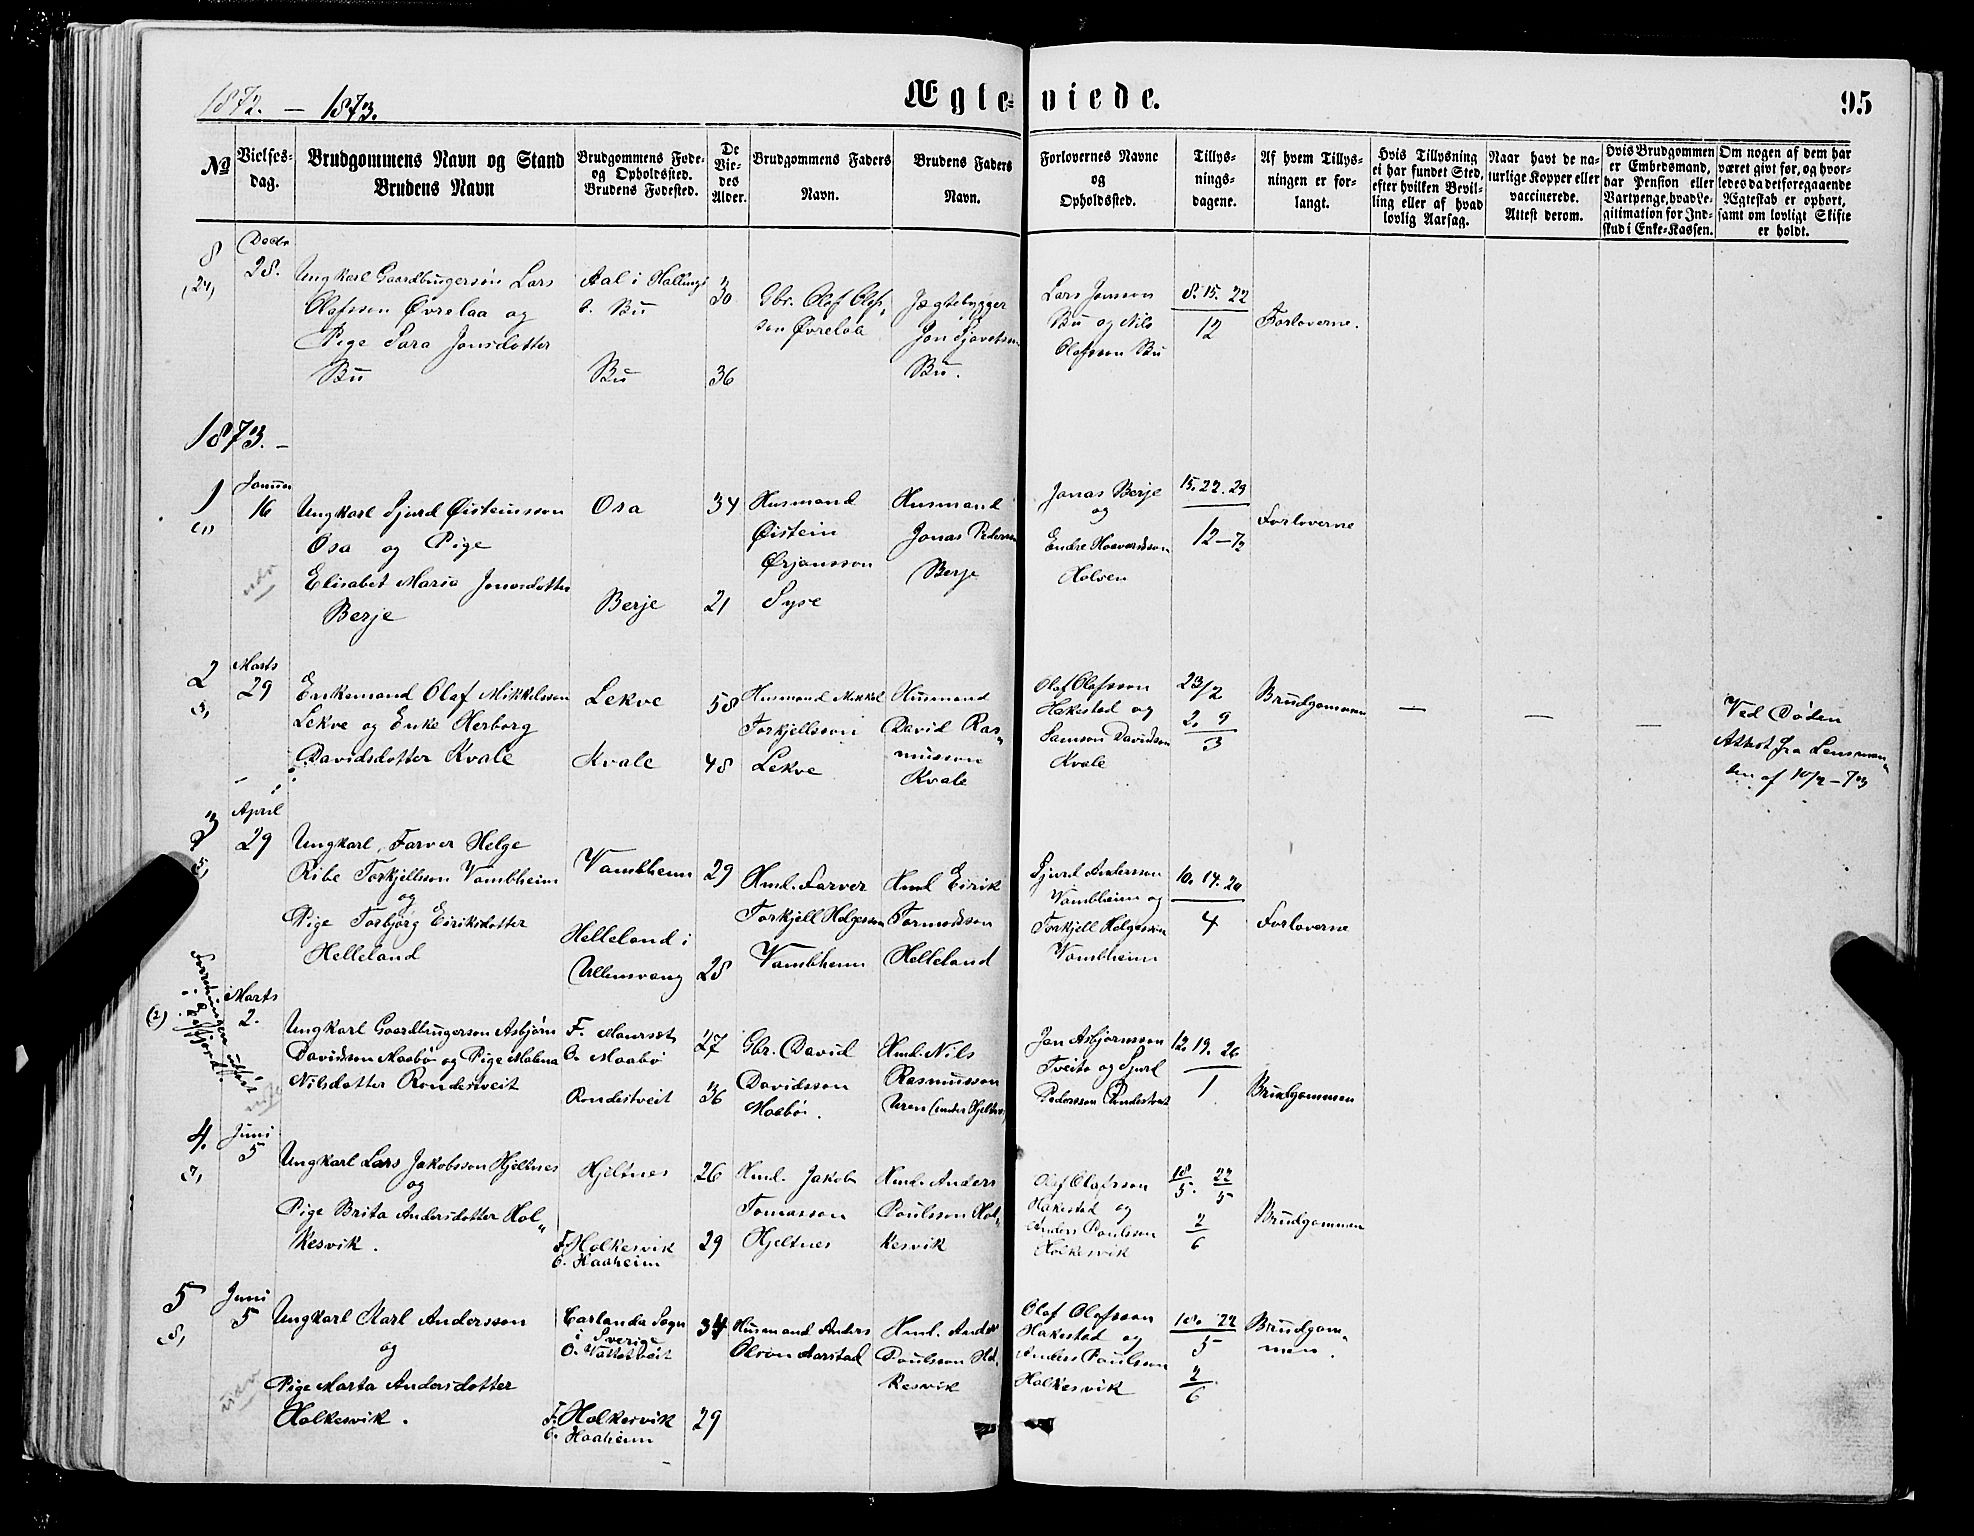 1872. — 1873.
Ægteviede.
95
No
Vielses-
dag.
Brudgommens Navn og Stand
Brudens Navn
Brudgommens Føde-
og Opholdssted.
Brudens Fødested.
De
Vie-
des
Alder.
Brudgommens Faders
Navn.
Brudens Faders
Navn.
Forlovernes Navne
og
Opholdssted.
Tillys-
nings-
dagene.
Af hvem Tillys-
ningen er for-
langt.
Hvis Tillysning
ei har fundet Sted,
efter hvilken Bevil-
ling eller af hvad
lovlig Aarsag.
Naar havt de na-
turlige Kopper eller
vaccinerede.
Attest derom.
Hvis Brudgommen
er Embedsmand,
har Pension eller
Vartpenge, hvad Le-
gitimation for Ind-
skud i Enke-Kassen.
Om nogen af dem har
været givt før, og hvor-
ledes da det foregaaende
Ægteskab er ophørt,
samt om lovligt Skifte
er holdt.
8
Decbr
28.
Ungkarl Gaardbrugersøn Lars
Olafsson Øvrelaa og
Pige Sara Jonsdotter
Bu
Aal i Hallingd
O. Bu
Bu
30
36
Gbr. Olaf Olafs
son Øvrelaa
Jægtebygger
Jon Sjovatsson
Bu.
Lars Jonsson
Bu og Nils
Olafsson Bu
8. 15. 22
12
Forloverne.
1873. —
1
(1)
Januar
16
Ungkarl Sjurd Øisteinsson
Osa og Pige
Elisabet Maria Jonasdotter
Berje
Osa
Berje
34
21
Husmand
Øistein
Ørjansson
Syse
Husmand
Jonas Pederson
Berje
Jonas Berje
og
Endre Haavardsson
Holven
15. 22. 29
12 — 72
Forloverne
2
3,
Marts
29
Enkemand Olaf Mikkelsson
Lekve og Enke Herborg
Davidsdotter Kvale
Lekve
Kvale
58
48
Husmand Mikkel
Torkjellsson
Lekve
Husmand
David Ras„
musson
Kvale
Olaf Olafsson
Hakestad og
Samson Davidson
Kvale
23/2
2. 9
3
Brudgommen
—
—
—
Ved Døden
Attest fra Lensman„
den af 10/2 — 73
3
April
29
Ungkarl, Farver Helge
Ribe Torkjellsson Vambheim
og
Pige Torbjørg Eiriksdotter
Helleland
Vambheim
Helleland i
Ullensvang
29
28
Hmd. Farver
Torkjell Helgesson
Vambheim
Hmd Eirik
Tormodsson
Helleland
Sjurd Andersson
Vambheim og
Torkjell Helgesson
Vambheim
10. 14. 20
4
Forloverne
Forretningen udført
i Eidfjord.
(2)
Marts
2.
Ungkarl Gaardbrugerson Asbjørn
Davidsson Maabø og Pige Malena
Nilsdotter Rondestveit
F. Maursæt
O. Maabø
Rondestveit
27
36
Gbr. David
Davidsson
Maabø.
Hmd. Nils
Rasmusson
Uren (under Hjeltnes)
Jon Asbjørnsson
Tveito og Sjurd
Pedersson Rondestveit
12. 19. 26
1
Brudgommen
4.
7,
Juni
5
Ungkarl Lars Jakobsson Hjeltnes
og
Pige Brita Andersdotter Hol„
kesvik.
Hjeltnes
F. Holkesvik
O. Haaheim
26
29
Hmd. Jakob
Tomasson
Hjeltnes
Hmd. Anders
Poulsson Hol„
kesvik
Olaf Olafsson
Hakestad og
Anders Poulsson
Holkesvik
18/5. 22/5
2/6
Brudgommen
5
8,
Juni
5
Ungkarl Karl Andersson
og
Pige Marta Andersdotter
Holkesvik.
Carlanda Sogn
i Sverige
F. Holkesvik
O. Haaheim
34
29
Husmand Anders
Hmd. Anders
Poulsson Hol„
kesvik
Olaf Olafsson
Hakestad og
Anders Poulsson
Holkesvik
18. 22
5
2/6
Brudgom„
men.